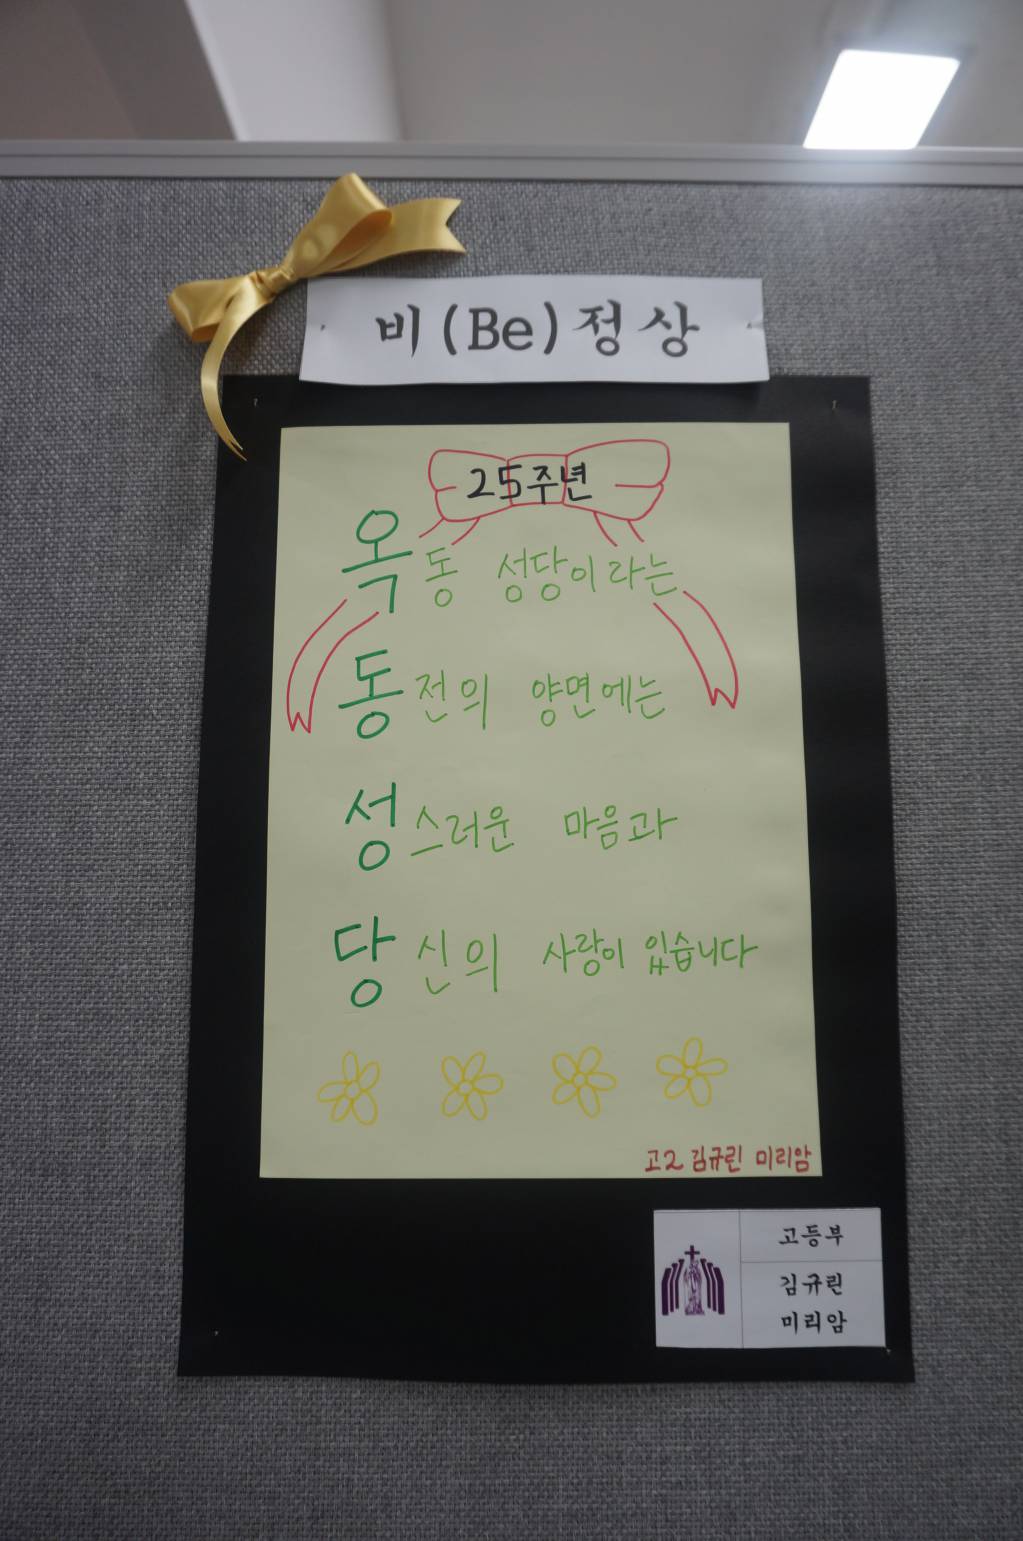 비(Be)정상
25주년
옥동 성당이라는
동전의 양면에는
성스러운 마음과
당신의 사랑이 있습니다
고2 김규린 미리암
고등부
김규린
미리암